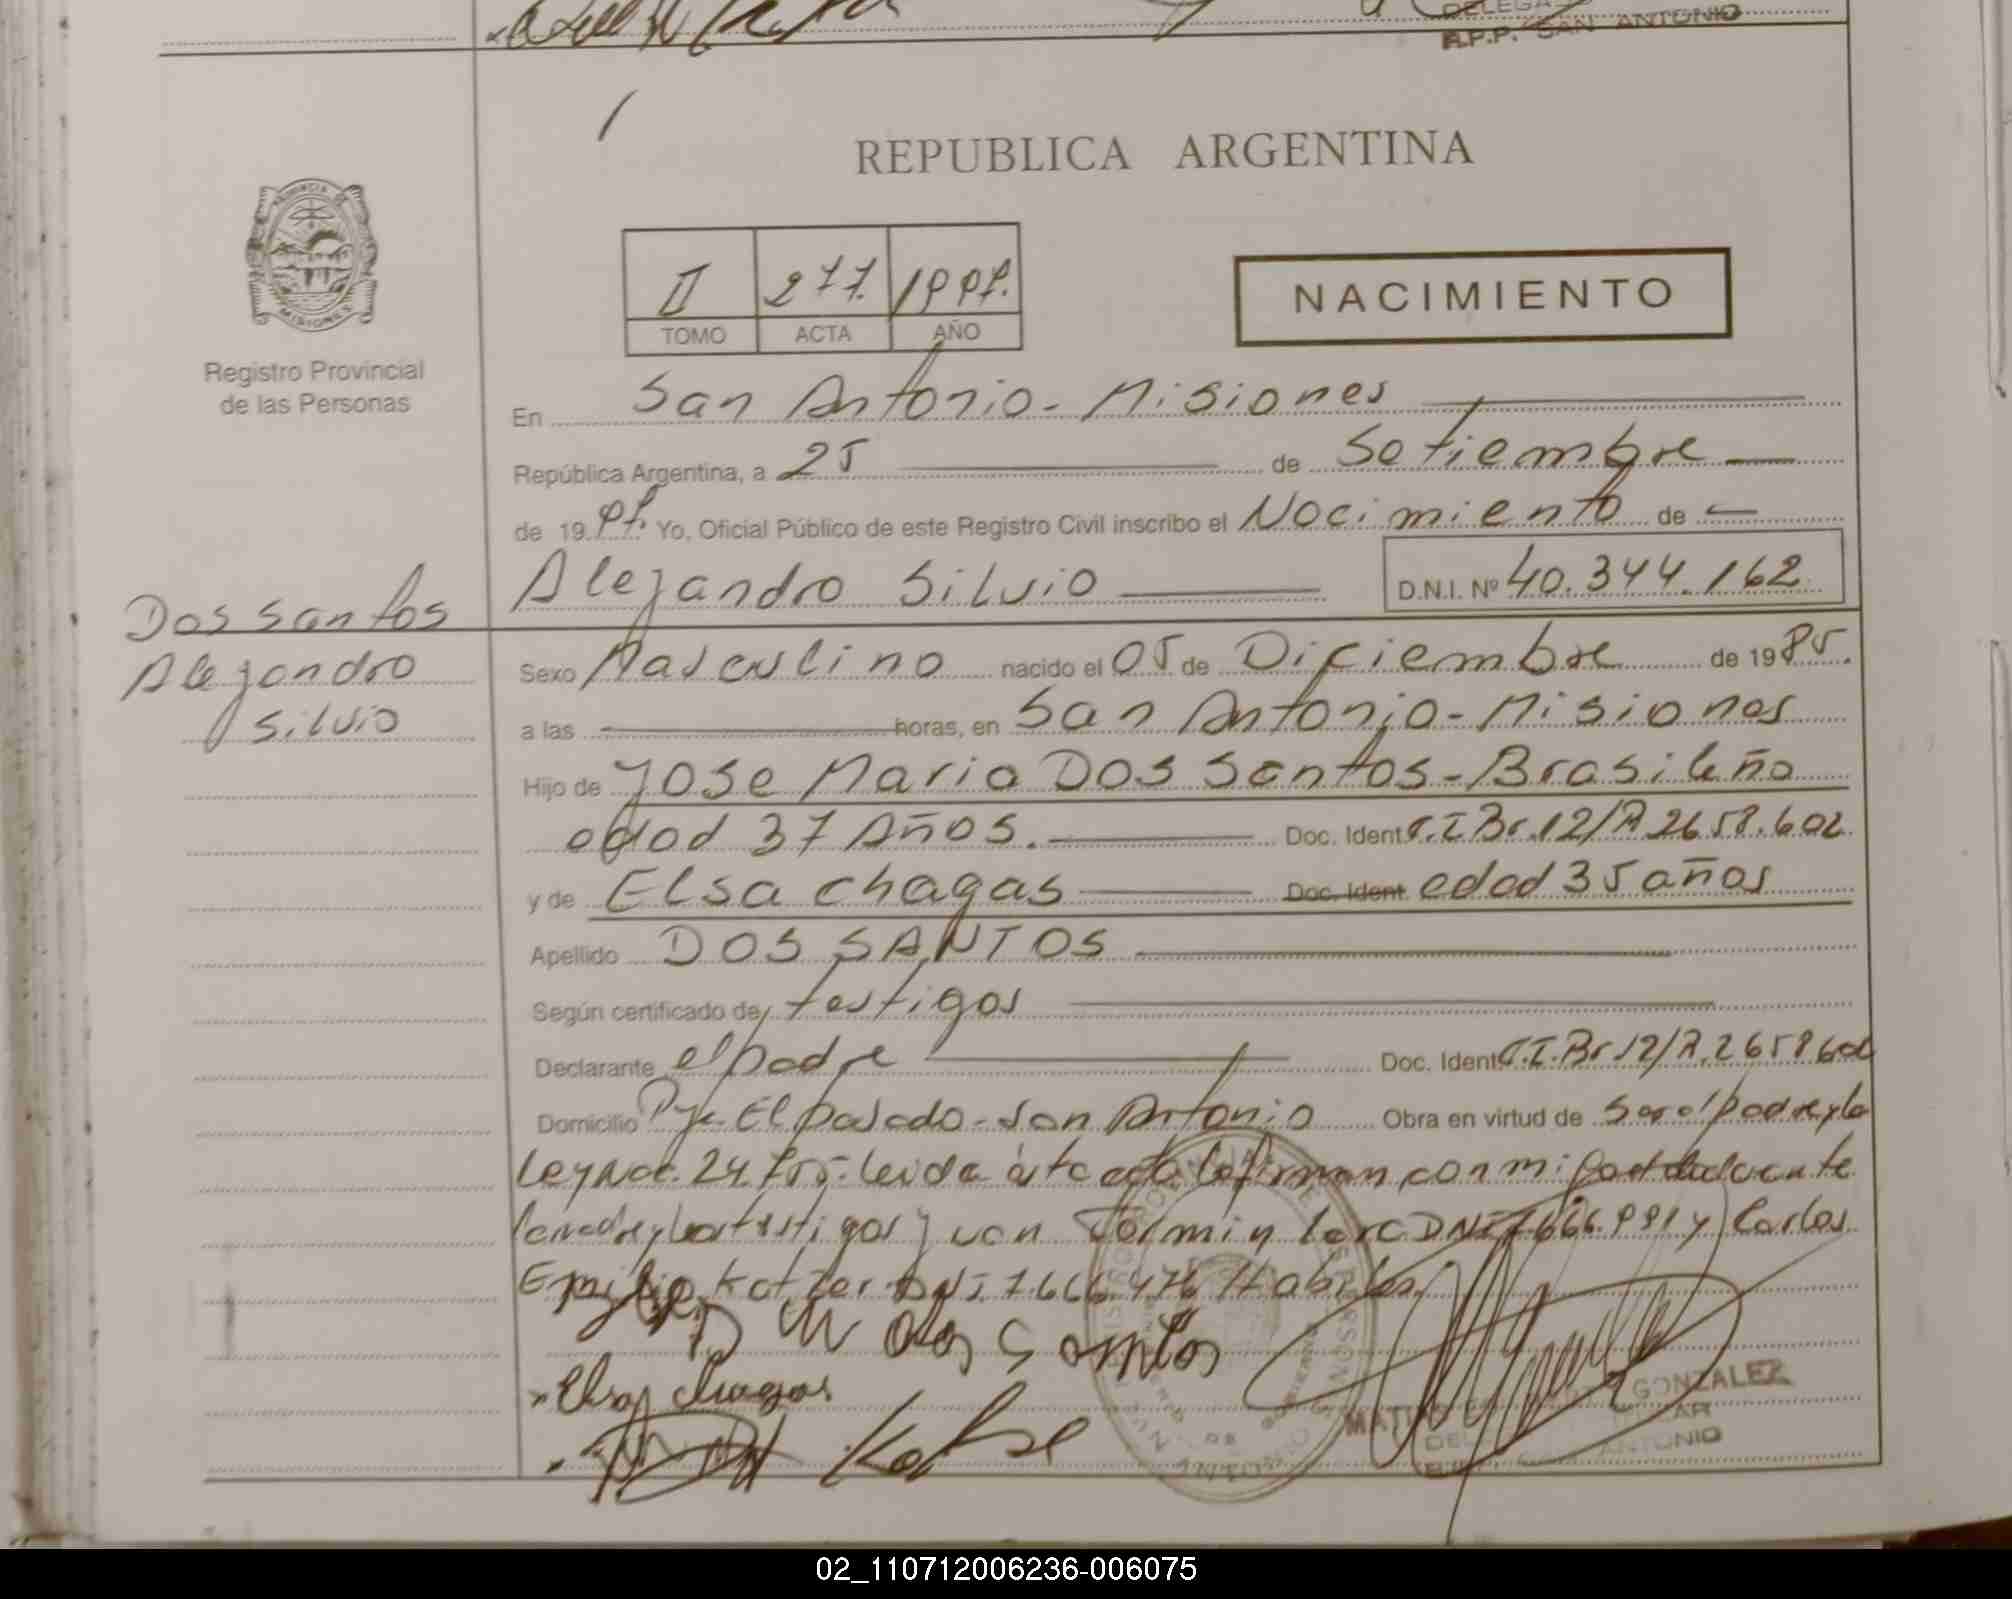 DELEGA
R.P.P. SAN ANTONIO
REPUBLICA ARGENTINA
PROVINCIA DE
MISIONES
Registro Provincial
de las Personas
II 277. 1998.
TOMO ACTA AÑO
NACIMIENTO
En San Antonio - Misiones
República Argentina, a 25 de Setiembre
de 19 98. Yo, Oficial Público de este Registro Civil inscribo el Nacimiento de
Alejandro Silvio D.N.I. Nº 40.344.162
Dos Santos
Alejandro
Silvio
Sexo Masculino nacido el 05 de Diciembre de 19 85.
a las horas, en San Antonio - Misiones
Hijo de Jose Maria Dos Santos - Brasileño
edad 37 Años. Doc. Ident C.I Br. 12/R 2658.602
y de Elsa Chagas Doc. Ident edad 35 años
Apellido DOS SANTOS
Según certificado de testigos
Declarante el padre Doc. Ident C.I. Br 12/R. 2658602
Domicilio Pje. El pasado - San Antonio Obra en virtud de ser el padre y la
Ley Nac. 24.755 - Leida esta acta la firman conmigo
la madre y los testigos Juan Fermin DNI 7.666.991 y Carlos
Emilio Kotter DNI 7.666.476 Habiles.
dos Santos
Elsa Chagas
GONZALEZ
ANTONIO
02_110712006236-006075